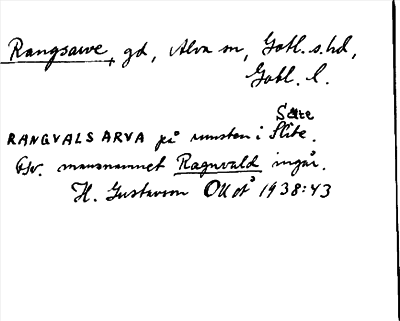 Rangsarve, gd, Alva sn, Gotl. s. hd,
Gotl. l.
Sute
RANGVALS ARVA på runsten i Slite.
Fsv. mansnamnet Ragnvald ingår.
H. Gustavson OUoÅ 1938:43